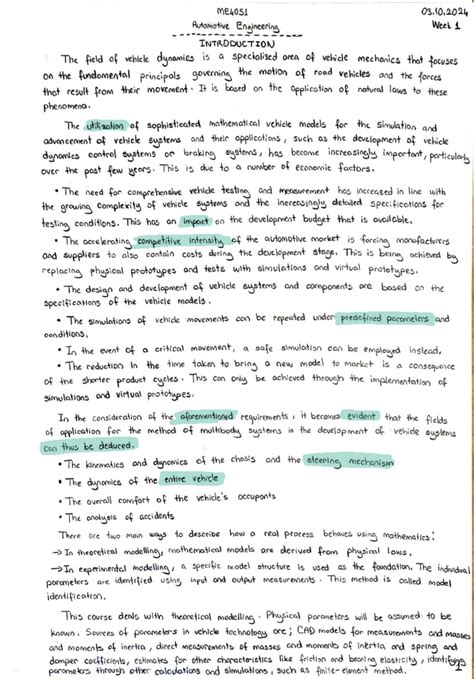 ME4051
03.10.2024
Automotive Engineering
Week 1
INTRODUCTION
The field of vehicle dynamics is a specialized area of vehicle mechanics that focuses
on the fundamental principals governing the motion of road vehicles and the forces
that result from their movement. It is based on the application of natural laws to these
phenomena.
The utilization of sophisticated mathematical vehicle models for the simulation and
advancement of vehicle systems and their applications, such as the development of vehicle
dynamics control systems or braking systems, has become increasingly important, particularly
over the past few years. This is due to a number of economic factors.
• The need for comprehensive vehicle testing and measurement has increased in line with
the growing complexity of vehicle systems and the increasingly detailed specifications for
testing conditions. This has an impact on the development budget that is available.
• The accelerating competitive intensity of the automotive market is forcing manufacturers
and suppliers to also contain costs during the development stage. This is being achieved by
replacing physical prototypes and tests with simulations and virtual prototypes.
• The design and development of vehicle systems and components are based on the
specifications of the vehicle models.
• The simulations of vehicle movements can be repeated under predefined parameters and
conditions.
• In the event of a critical movement, a safe simulation can be employed instead.
• The reduction in the time taken to bring a new model to market is a consequence
of the shorter product cycles. This can only be achieved through the implementation of
simulations and virtual prototypes.
In the consideration of the aforementioned requirements, it becomes evident that the fields
of application for the method of multibody systems in the development of vehicle systems
can thus be deduced.
• The kinematics and dynamics of the chasis and the steering mechanism
• The dynamics of the entire vehicle
• The overall comfort of the vehicle's occupants
• The analysis of accidents
There are two main ways to describe how a real process behaves using mathematics:
→ In theoretical modelling, mathematical models are derived from physical laws.
→ In experimental modelling, a specific model structure is used as the foundation. The individual
parameters are identified using input and output measurements. This method is called model
identification.
This course deals with theoretical modelling. Physical parameters will be assumed to be
known. Sources of parameters in vehicle technology are; CAD models for measurements and masses
and moments of inertia, direct measurements of masses and moments of inertia and spring and
damper coefficients, estimates for other characteristics like friction and bearing elasticity, identifying
parameters through other calculations and simulations, such as finite-element method.
1